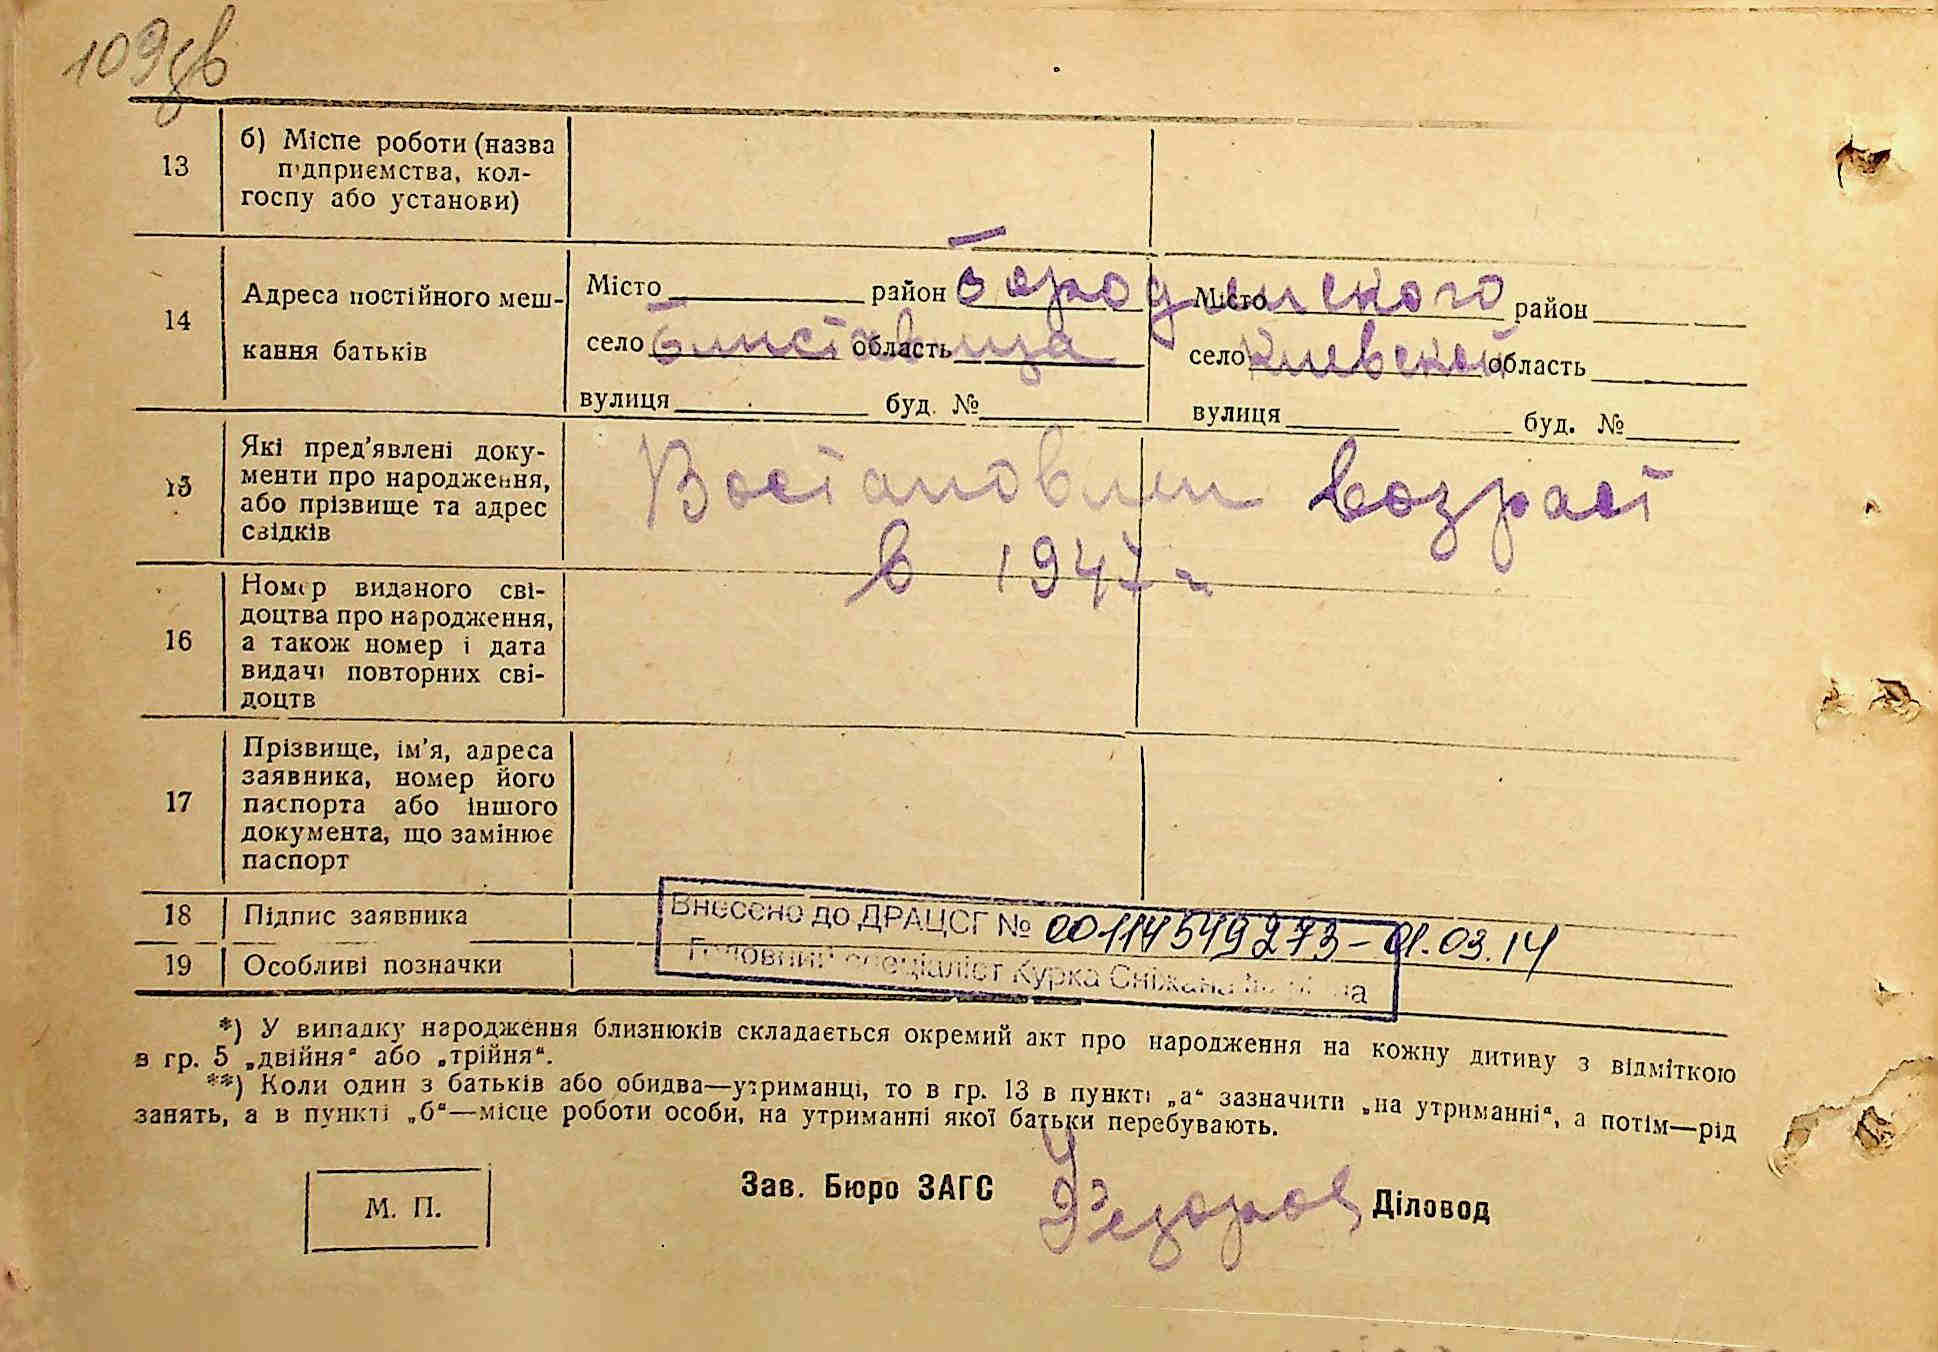 109зв
13
б) Місце роботи (назва
підприємства, кол-
госпу або установи)
14
Адреса постійного меш-
кання батьків
Місто район Бородянского
село Блиставица область
вулиця буд. №
Місто район
село Киевской область
вулиця буд. №
15
Які пред'явлені доку-
менти про народження,
або прізвище та адрес
свідків
Востановлен возраст
в 1947 г
16
Номер виданого сві-
доцтва про народження,
а також номер і дата
видачі повторних сві-
доцтв
17
Прізвище, ім'я, адреса
заявника, номер його
паспорта або іншого
документа, що замінює
паспорт
18 Підпис заявника
19 Особливі позначки
Внесено до ДРАЦСГ № 00114549273-01.03.14
Головний спеціаліст Курка Сніжана
*) У випадку народження близнюків складається окремий акт про народження на кожну дитину з відміткою
в гр. 5 „двійня“ або „трійня“.
**) Коли один з батьків або обидва—утриманці, то в гр. 13 в пункті „а“ зазначити „на утриманні“, а потім—рід
занять, а в пункті „б“—місце роботи особи, на утриманні якої батьки перебувають.
М. П.
Зав. Бюро ЗАГС
Діловод